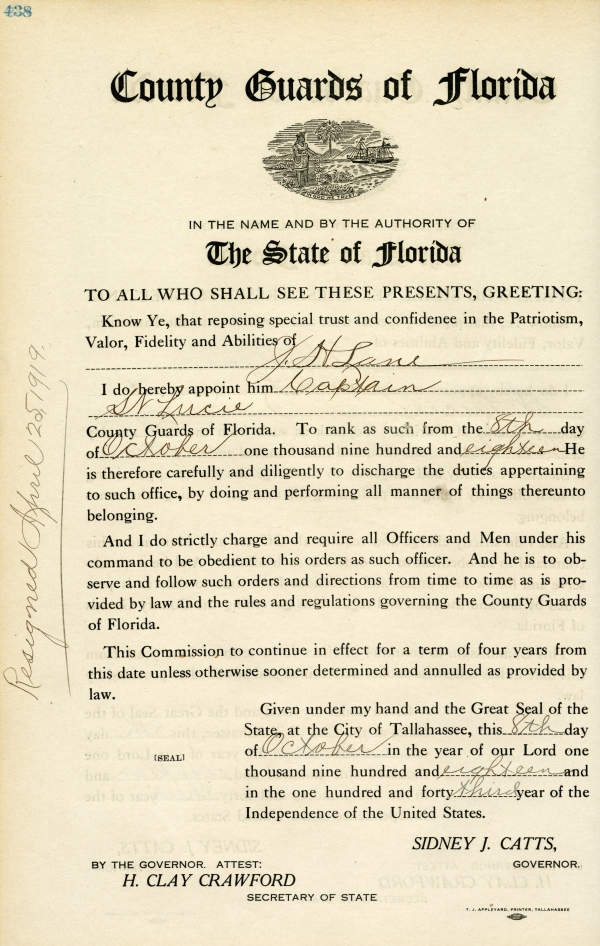 438
County Guards of Florida
IN THE NAME AND BY THE AUTHORITY OF
The State of Florida
TO ALL WHO SHALL SEE THESE PRESENTS, GREETING:
Know Ye, that reposing special trust and confidence in the Patriotism,
Valor, Fidelity and Abilities of J. H. Lane
I do hereby appoint him Captain
St Lucie
County Guards of Florida. To rank as such from the 8th day
of October one thousand nine hundred and eighteen He
is therefore carefully and diligently to discharge the duties appertaining
to such office, by doing and performing all manner of things thereunto
belonging.
And I do strictly charge and require all Officers and Men under his
command to be obedient to his orders as such officer. And he is to ob-
serve and follow such orders and directions from time to time as is pro-
vided by law and the rules and regulations governing the County Guards
of Florida.
This Commission to continue in effect for a term of four years from
this date unless otherwise sooner determined and annulled as provided by
law.
Given under my hand and the Great Seal of the
State, at the City of Tallahassee, this 8th day
of October in the year of our Lord one
[SEAL]
thousand nine hundred and eighteen and
in the one hundred and forty third year of the
Independence of the United States.
SIDNEY J. CATTS,
GOVERNOR.
BY THE GOVERNOR. ATTEST:
H. CLAY CRAWFORD
SECRETARY OF STATE
T. J. APPLEYARD, PRINTER, TALLAHASSEE
Resigned April 25, 1919.